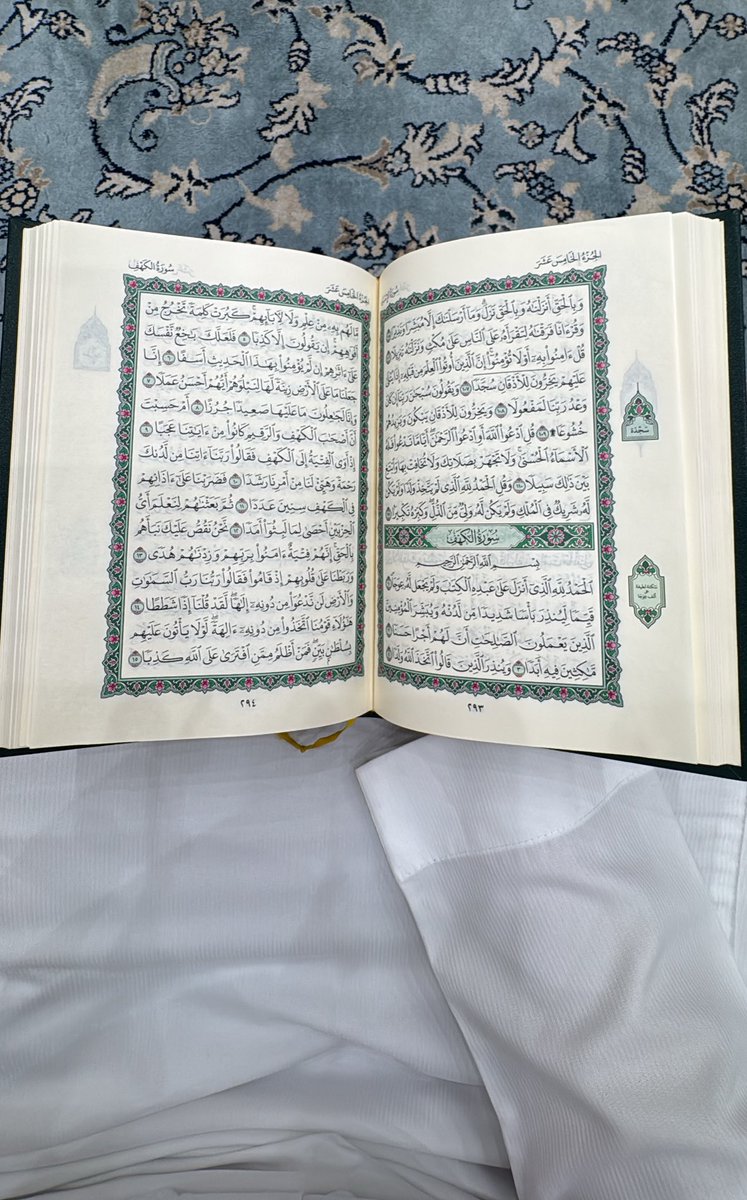 الجُزْءُ الخَامِسَ عَشَرَ
وَبِٱلْحَقِّ أَنزَلْنَٰهُ وَبِٱلْحَقِّ نَزَلَ وَمَآ أَرْسَلْنَٰكَ إِلَّا مُبَشِّرًا وَنَذِيرًا ١٠٥
وَقُرْءَانًا فَرَقْنَٰهُ لِتَقْرَأَهُۥ عَلَى ٱلنَّاسِ عَلَىٰ مُكْثٍ وَنَزَّلْنَٰهُ تَنزِيلًا ١٠٦
قُلْ ءَامِنُوا۟ بِهِۦٓ أَوْ لَا تُؤْمِنُوٓا۟ إِنَّ ٱلَّذِينَ أُوتُوا۟ ٱلْعِلْمَ مِن قَبْلِهِۦٓ إِذَا يُتْلَىٰ
عَلَيْهِمْ يَخِرُّونَ لِلْأَذْقَانِ سُجَّدًا ١٠٧ وَيَقُولُونَ سُبْحَٰنَ رَبِّنَآ إِن كَانَ
وَعْدُ رَبِّنَا لَمَفْعُولًا ١٠٨ وَيَخِرُّونَ لِلْأَذْقَانِ يَبْكُونَ وَيَزِيدُهُمْ
خُشُوعًا ۩ ١٠٩ قُلِ ٱدْعُوا۟ ٱللَّهَ أَوِ ٱدْعُوا۟ ٱلرَّحْمَٰنَ أَيًّا مَّا تَدْعُوا۟ فَلَهُ
ٱلْأَسْمَآءُ ٱلْحُسْنَىٰ وَلَا تَجْهَرْ بِصَلَاتِكَ وَلَا تُخَافِتْ بِهَا وَٱبْتَغِ
بَيْنَ ذَٰلِكَ سَبِيلًا ١١٠ وَقُلِ ٱلْحَمْدُ لِلَّهِ ٱلَّذِى لَمْ يَتَّخِذْ وَلَدًا وَلَمْ يَكُن
لَّهُۥ شَرِيكٌ فِى ٱلْمُلْكِ وَلَمْ يَكُن لَّهُۥ وَلِىٌّ مِّنَ ٱلذُّلِّ وَكَبِّرْهُ تَكْبِيرًۢا ١١١
سُورَةُ الكَهْفِ
بِسْمِ ٱللَّهِ ٱلرَّحْمَٰنِ ٱلرَّحِيمِ
ٱلْحَمْدُ لِلَّهِ ٱلَّذِىٓ أَنزَلَ عَلَىٰ عَبْدِهِ ٱلْكِتَٰبَ وَلَمْ يَجْعَل لَّهُۥ عِوَجَا ١
قَيِّمًا لِّيُنذِرَ بَأْسًا شَدِيدًا مِّن لَّدُنْهُ وَيُبَشِّرَ ٱلْمُؤْمِنِينَ
ٱلَّذِينَ يَعْمَلُونَ ٱلصَّٰلِحَٰتِ أَنَّ لَهُمْ أَجْرًا حَسَنًا ٢
مَّٰكِثِينَ فِيهِ أَبَدًا ٣ وَيُنذِرَ ٱلَّذِينَ قَالُوا۟ ٱتَّخَذَ ٱللَّهُ وَلَدًا ٤
٢٩٣
سَجْدَة
سكتة لطيفة
على
ألف عوجا
سُورَةُ الكَهْفِ
الجُزْءُ الخَامِسَ عَشَرَ
مَّا لَهُم بِهِۦ مِنْ عِلْمٍ وَلَا لِـَٔابَآئِهِمْ كَبُرَتْ كَلِمَةً تَخْرُجُ مِنْ
أَفْوَٰهِهِمْ إِن يَقُولُونَ إِلَّا كَذِبًا ٥ فَلَعَلَّكَ بَٰخِعٌ نَّفْسَكَ
عَلَىٰٓ ءَاثَٰرِهِمْ إِن لَّمْ يُؤْمِنُوا۟ بِهَٰذَا ٱلْحَدِيثِ أَسَفًا ٦ إِنَّا
جَعَلْنَا مَا عَلَى ٱلْأَرْضِ زِينَةً لَّهَا لِنَبْلُوَهُمْ أَيُّهُمْ أَحْسَنُ عَمَلًا ٧
وَإِنَّا لَجَٰعِلُونَ مَا عَلَيْهَا صَعِيدًا جُرُزًا ٨ أَمْ حَسِبْتَ
أَنَّ أَصْحَٰبَ ٱلْكَهْفِ وَٱلرَّقِيمِ كَانُوا۟ مِنْ ءَايَٰتِنَا عَجَبًا ٩
إِذْ أَوَى ٱلْفِتْيَةُ إِلَى ٱلْكَهْفِ فَقَالُوا۟ رَبَّنَآ ءَاتِنَا مِن لَّدُنكَ
رَحْمَةً وَهَيِّئْ لَنَا مِنْ أَمْرِنَا رَشَدًا ١٠ فَضَرَبْنَا عَلَىٰٓ ءَاذَانِهِمْ
فِى ٱلْكَهْفِ سِنِينَ عَدَدًا ١١ ثُمَّ بَعَثْنَٰهُمْ لِنَعْلَمَ أَىُّ
ٱلْحِزْبَيْنِ أَحْصَىٰ لِمَا لَبِثُوٓا۟ أَمَدًا ١٢ نَّحْنُ نَقُصُّ عَلَيْكَ نَبَأَهُم
بِٱلْحَقِّ إِنَّهُمْ فِتْيَةٌ ءَامَنُوا۟ بِرَبِّهِمْ وَزِدْنَٰهُمْ هُدًى ١٣
وَرَبَطْنَا عَلَىٰ قُلُوبِهِمْ إِذْ قَامُوا۟ فَقَالُوا۟ رَبُّنَا رَبُّ ٱلسَّمَٰوَٰتِ
وَٱلْأَرْضِ لَن نَّدْعُوَا۟ مِن دُونِهِۦٓ إِلَٰهًا لَّقَدْ قُلْنَآ إِذًا شَطَطًا ١٤
هَٰٓؤُلَآءِ قَوْمُنَا ٱتَّخَذُوا۟ مِن دُونِهِۦٓ ءَالِهَةً لَّوْلَا يَأْتُونَ عَلَيْهِم
بِسُلْطَٰنٍۭ بَيِّنٍ فَمَنْ أَظْلَمُ مِمَّنِ ٱفْتَرَىٰ عَلَى ٱللَّهِ كَذِبًا ١٥
٢٩٤